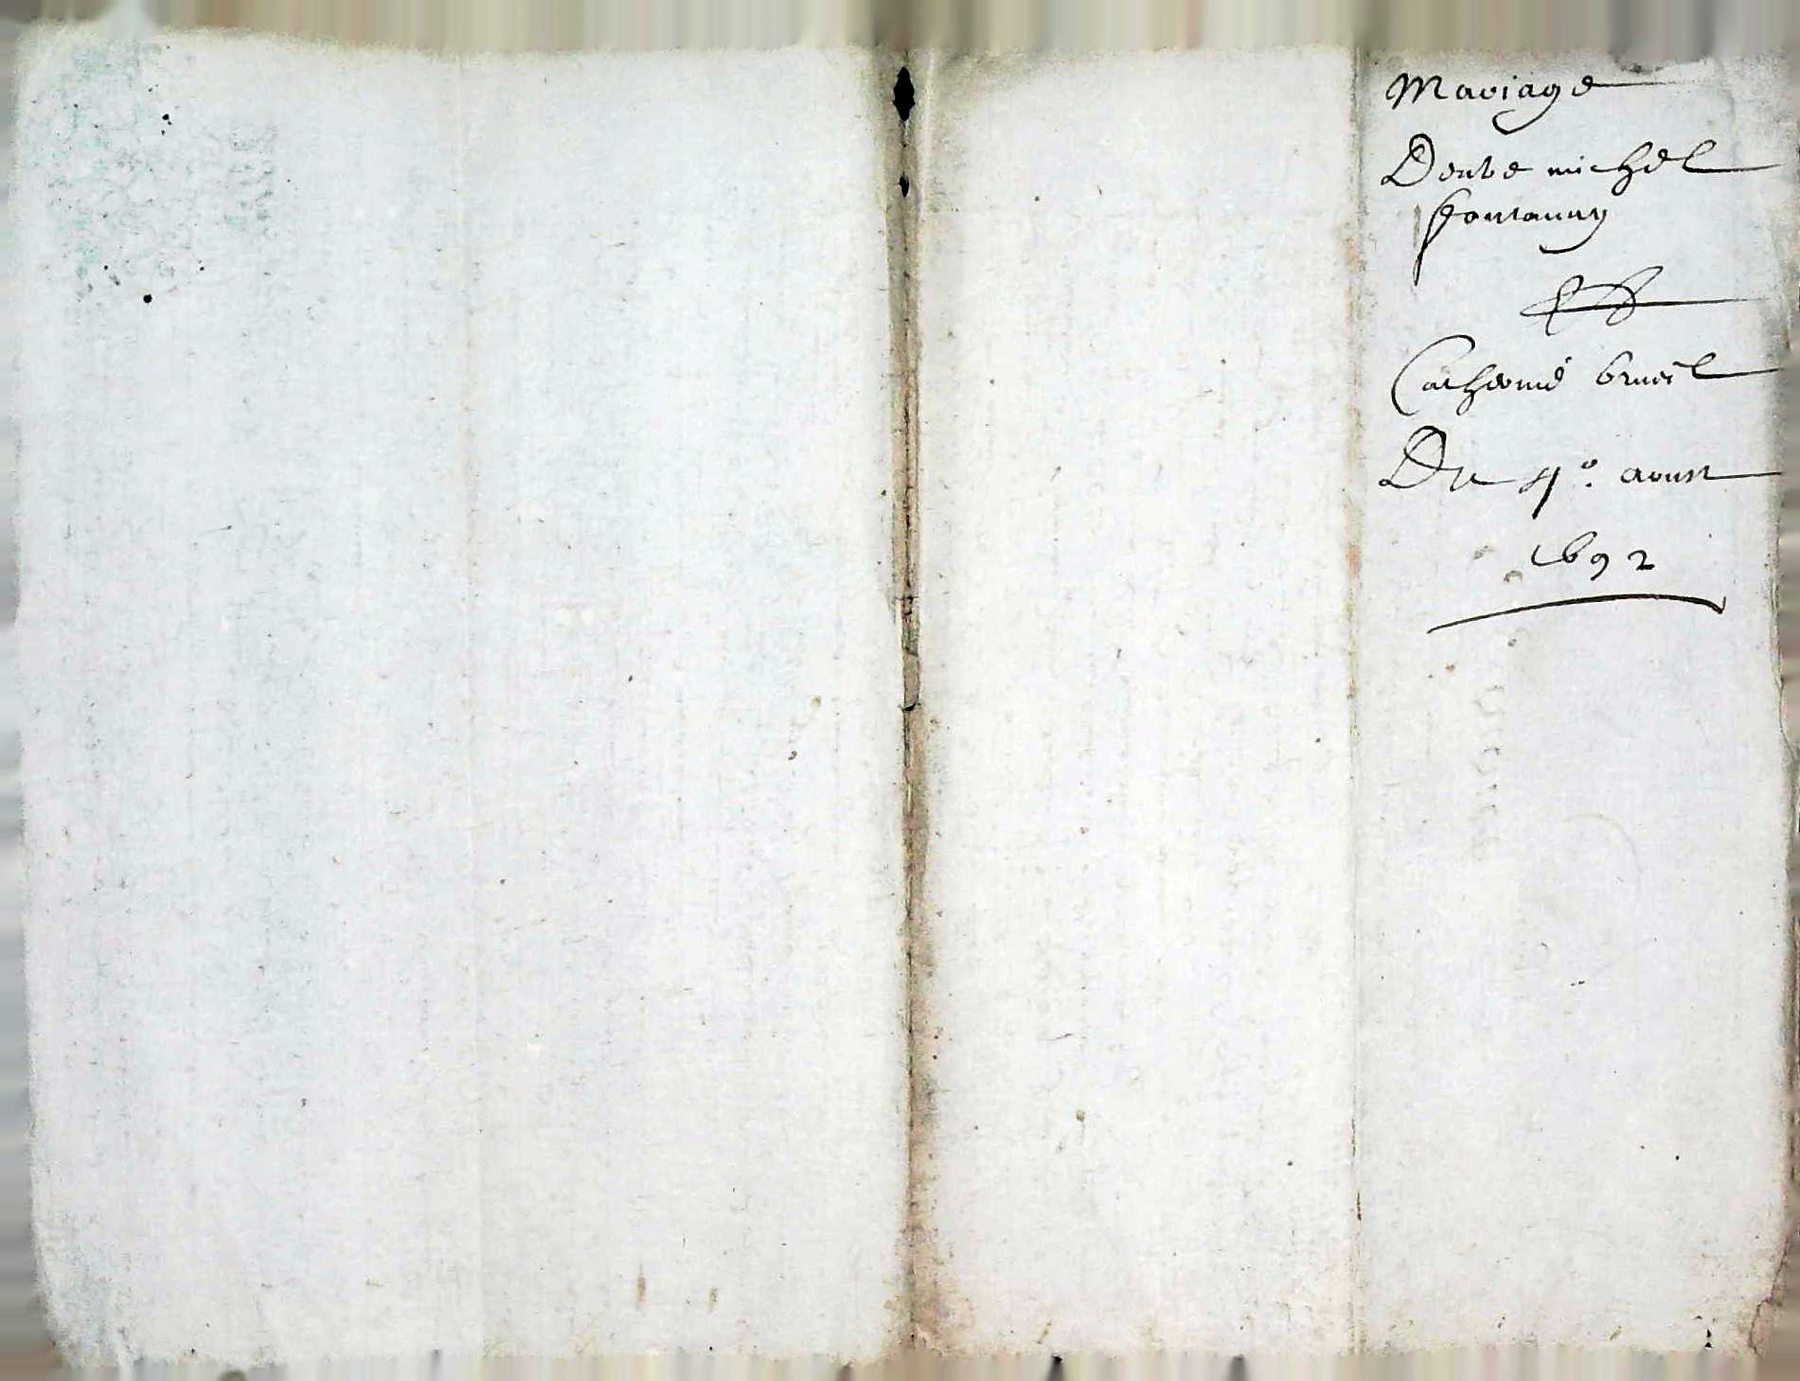 Mariage
D'entre michel
fontanny
Et
Catherine bruel
Du 4e. aoust
1692